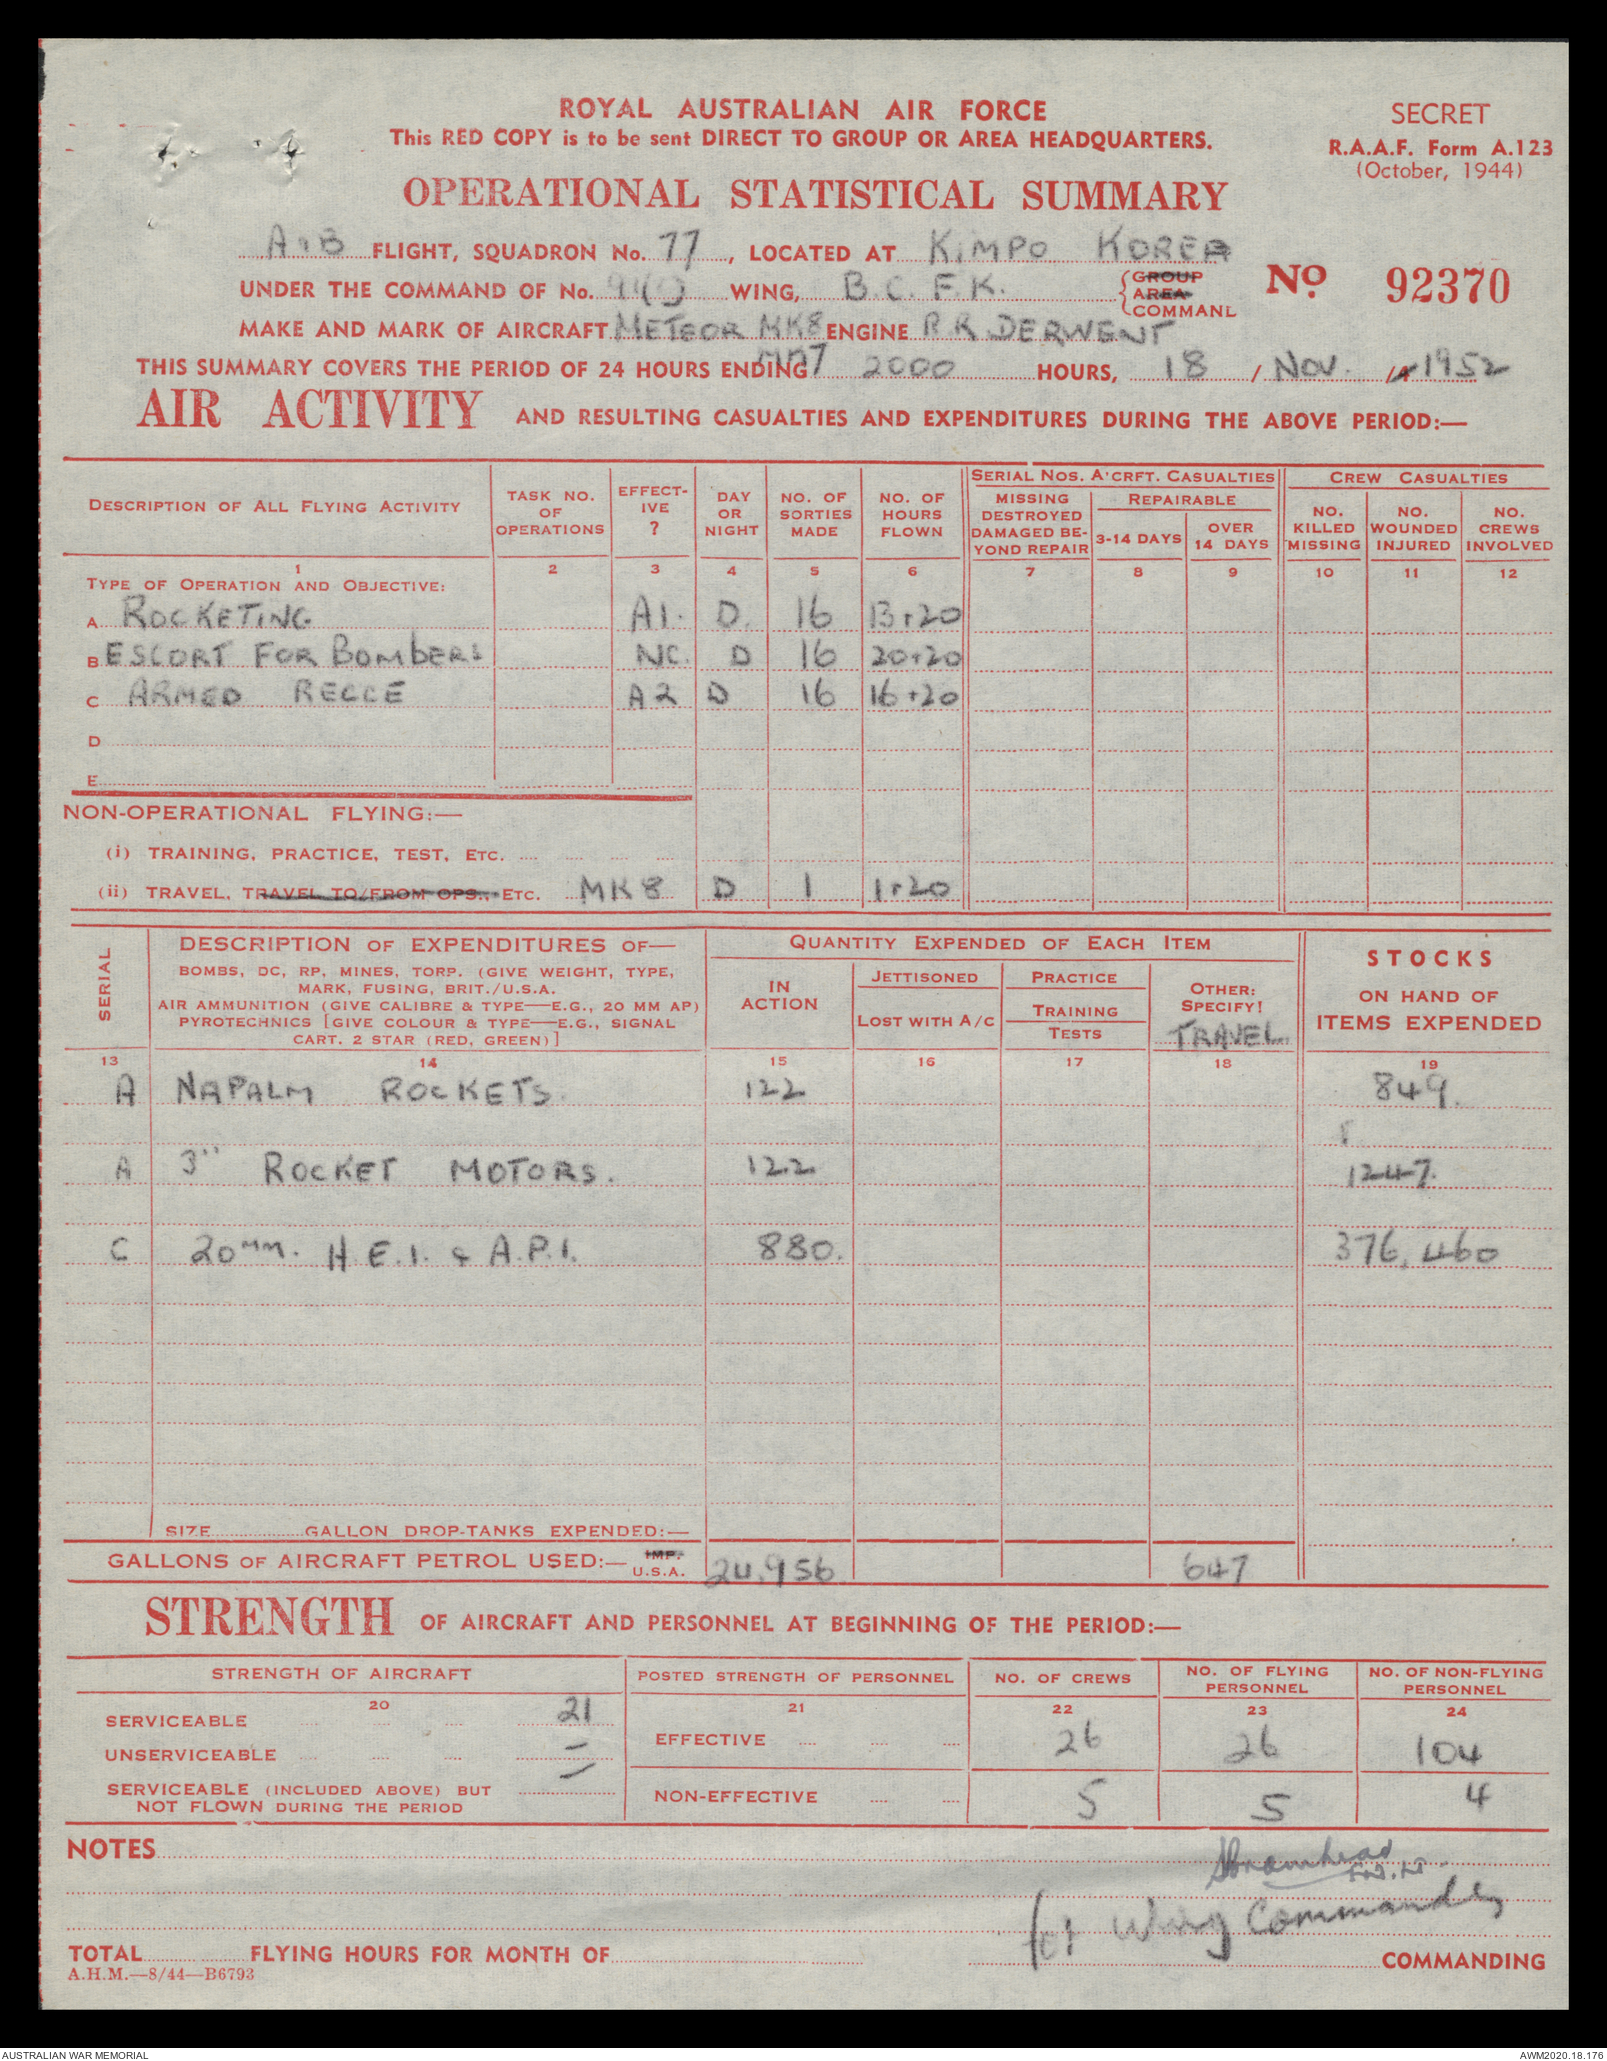 ROYAL AUSTRALIAN AIR FORCE
This RED COPY is to be sent DIRECT TO GROUP OR AREA HEADQUARTERS.
SECRET
R.A.A.F. Form A.123
(October, 1944)
OPERATIONAL STATISTICAL SUMMARY
A & B FLIGHT, SQUADRON No. 77, LOCATED AT KIMPO KOREA
UNDER THE COMMAND OF No. WING, B.C.F.K. GROUP AREA COMMAND
No 92370
MAKE AND MARK OF AIRCRAFT METEOR MK8 ENGINE R.R. DERWENT
THIS SUMMARY COVERS THE PERIOD OF 24 HOURS ENDING 2000 HOURS, 18 / NOV. / 1952
AIR ACTIVITY AND RESULTING CASUALTIES AND EXPENDITURES DURING THE ABOVE PERIOD:—
DESCRIPTION OF ALL FLYING ACTIVITY
TASK NO. OF OPERATIONS
EFFECT-IVE ?
DAY OR NIGHT
NO. OF SORTIES MADE
NO. OF HOURS FLOWN
SERIAL NOS. A'CRFT. CASUALTIES
MISSING DESTROYED DAMAGED BE-YOND REPAIR
REPAIRABLE
3-14 DAYS
OVER 14 DAYS
CREW CASUALTIES
NO. KILLED MISSING
NO. WOUNDED INJURED
NO. CREWS INVOLVED
1 2 3 4 5 6 7 8 9 10 11 12
TYPE OF OPERATION AND OBJECTIVE:
A ROCKETING A1. D. 16 13+20
B ESCORT FOR BOMBERS NC. D 16 20+20
C ARMED RECCE A2 D 16 16+20
D
E
NON-OPERATIONAL FLYING:—
(i) TRAINING, PRACTICE, TEST, ETC.
(ii) TRAVEL, TRAVEL TO/FROM OPS., ETC. MK8 D 1 1+20
SERIAL
DESCRIPTION OF EXPENDITURES OF—
BOMBS, DC, RP, MINES, TORP. (GIVE WEIGHT, TYPE,
MARK, FUSING, BRIT./U.S.A.
AIR AMMUNITION (GIVE CALIBRE & TYPE—E.G., 20 MM AP)
PYROTECHNICS [GIVE COLOUR & TYPE—E.G., SIGNAL
CART. 2 STAR (RED, GREEN)]
QUANTITY EXPENDED OF EACH ITEM
IN ACTION
JETTISONED
LOST WITH A/C
PRACTICE
TRAINING
TESTS
OTHER: SPECIFY!
TRAVEL.
STOCKS
ON HAND OF
ITEMS EXPENDED
13 14 15 16 17 18 19
A NAPALM ROCKETS. 122 849.
A 3" ROCKET MOTORS. 122 1247.
C 20mm. H.E.I. & A.P.I. 880. 376,460
SIZE GALLON DROP-TANKS EXPENDED:—
GALLONS OF AIRCRAFT PETROL USED:— IMP. U.S.A. 24,956 647
STRENGTH OF AIRCRAFT AND PERSONNEL AT BEGINNING OF THE PERIOD:—
STRENGTH OF AIRCRAFT
POSTED STRENGTH OF PERSONNEL
NO. OF CREWS
NO. OF FLYING PERSONNEL
NO. OF NON-FLYING PERSONNEL
20 21 22 23 24
SERVICEABLE 21
UNSERVICEABLE –
SERVICEABLE (INCLUDED ABOVE) BUT
NOT FLOWN DURING THE PERIOD –
EFFECTIVE 26 26 104
NON-EFFECTIVE 5 5 4
NOTES
for Wing Commander
TOTAL FLYING HOURS FOR MONTH OF COMMANDING
A.H.M.—8/44—B6793
AUSTRALIAN WAR MEMORIAL
AWM2020.18.176